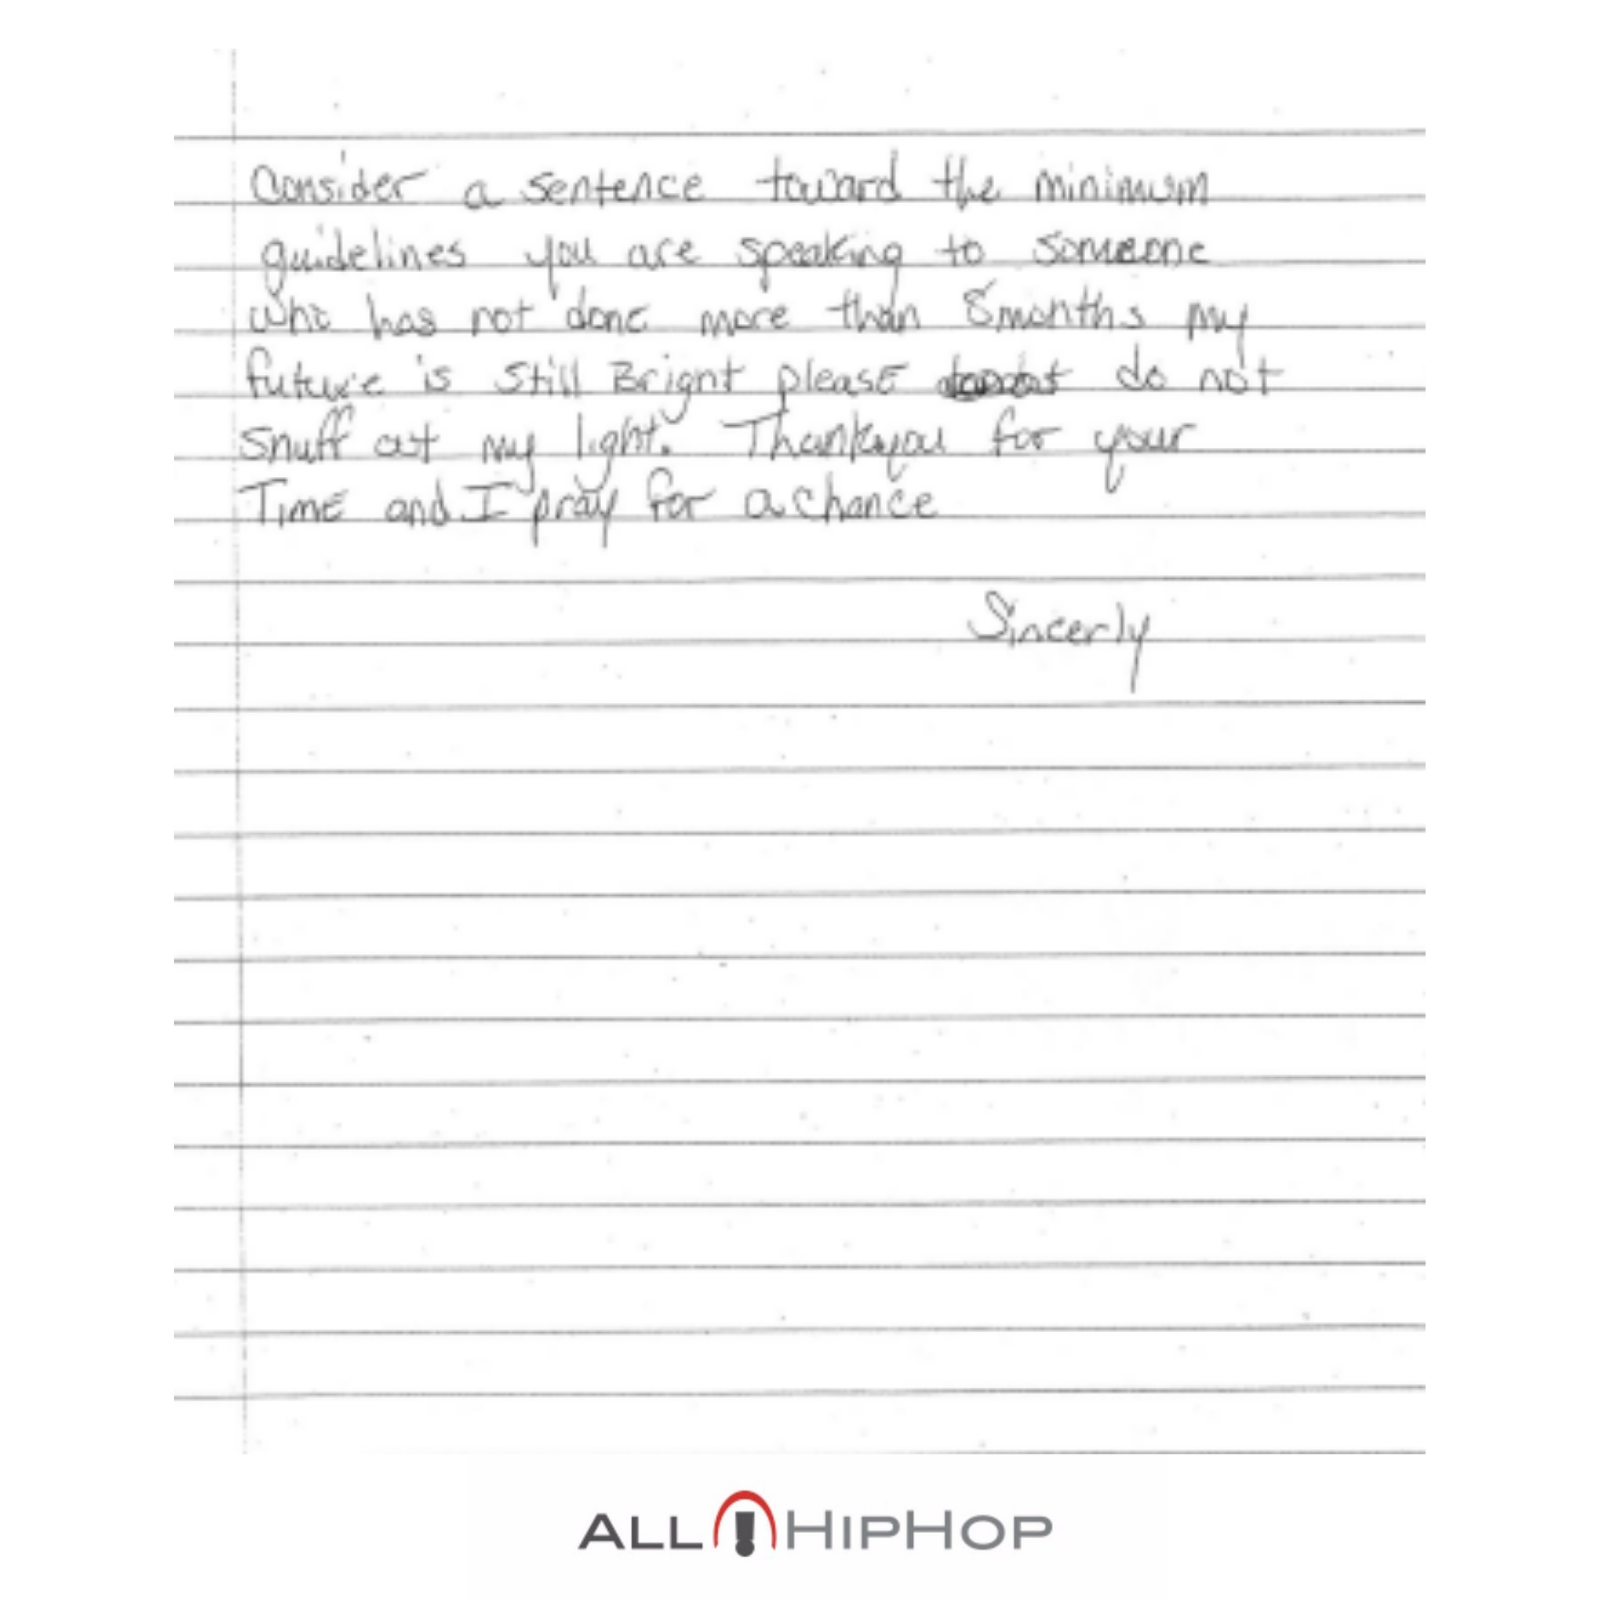 Consider a sentence toward the minimum
guidelines you are speaking to someone
who has not done more than 8months my
future is still Bright please do not
snuff out my light. Thankyou for your
Time and I pray for a chance
Sincerly
ALL HIPHOP